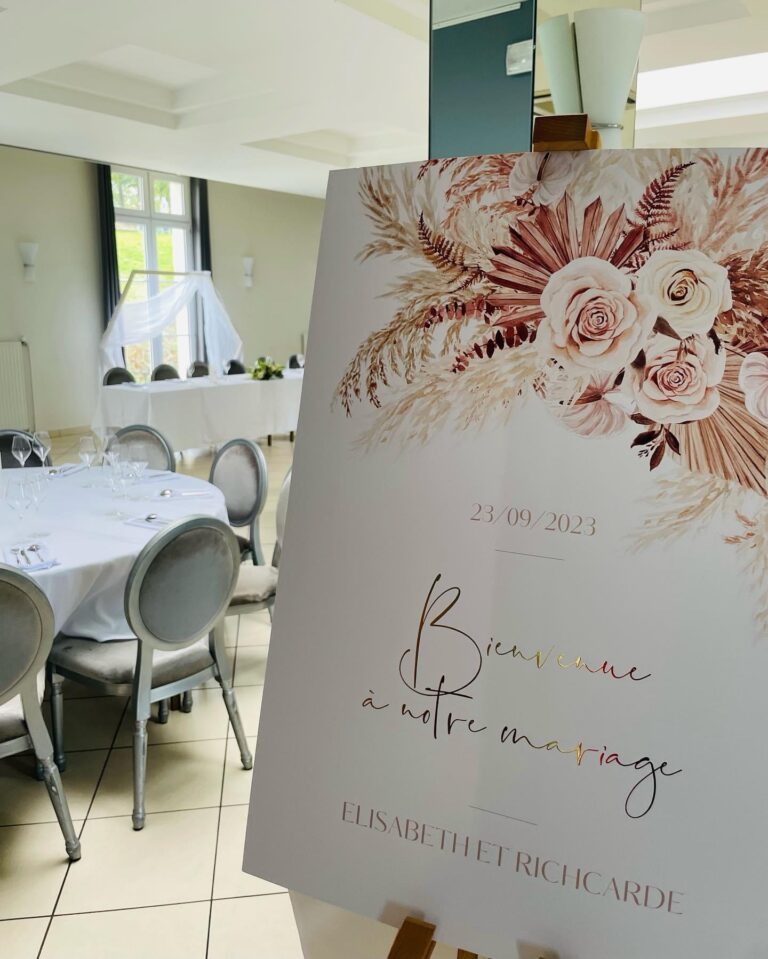 23/09/2023
Bienvenue
à notre mariage
ELISABETH ET RICHCARDE